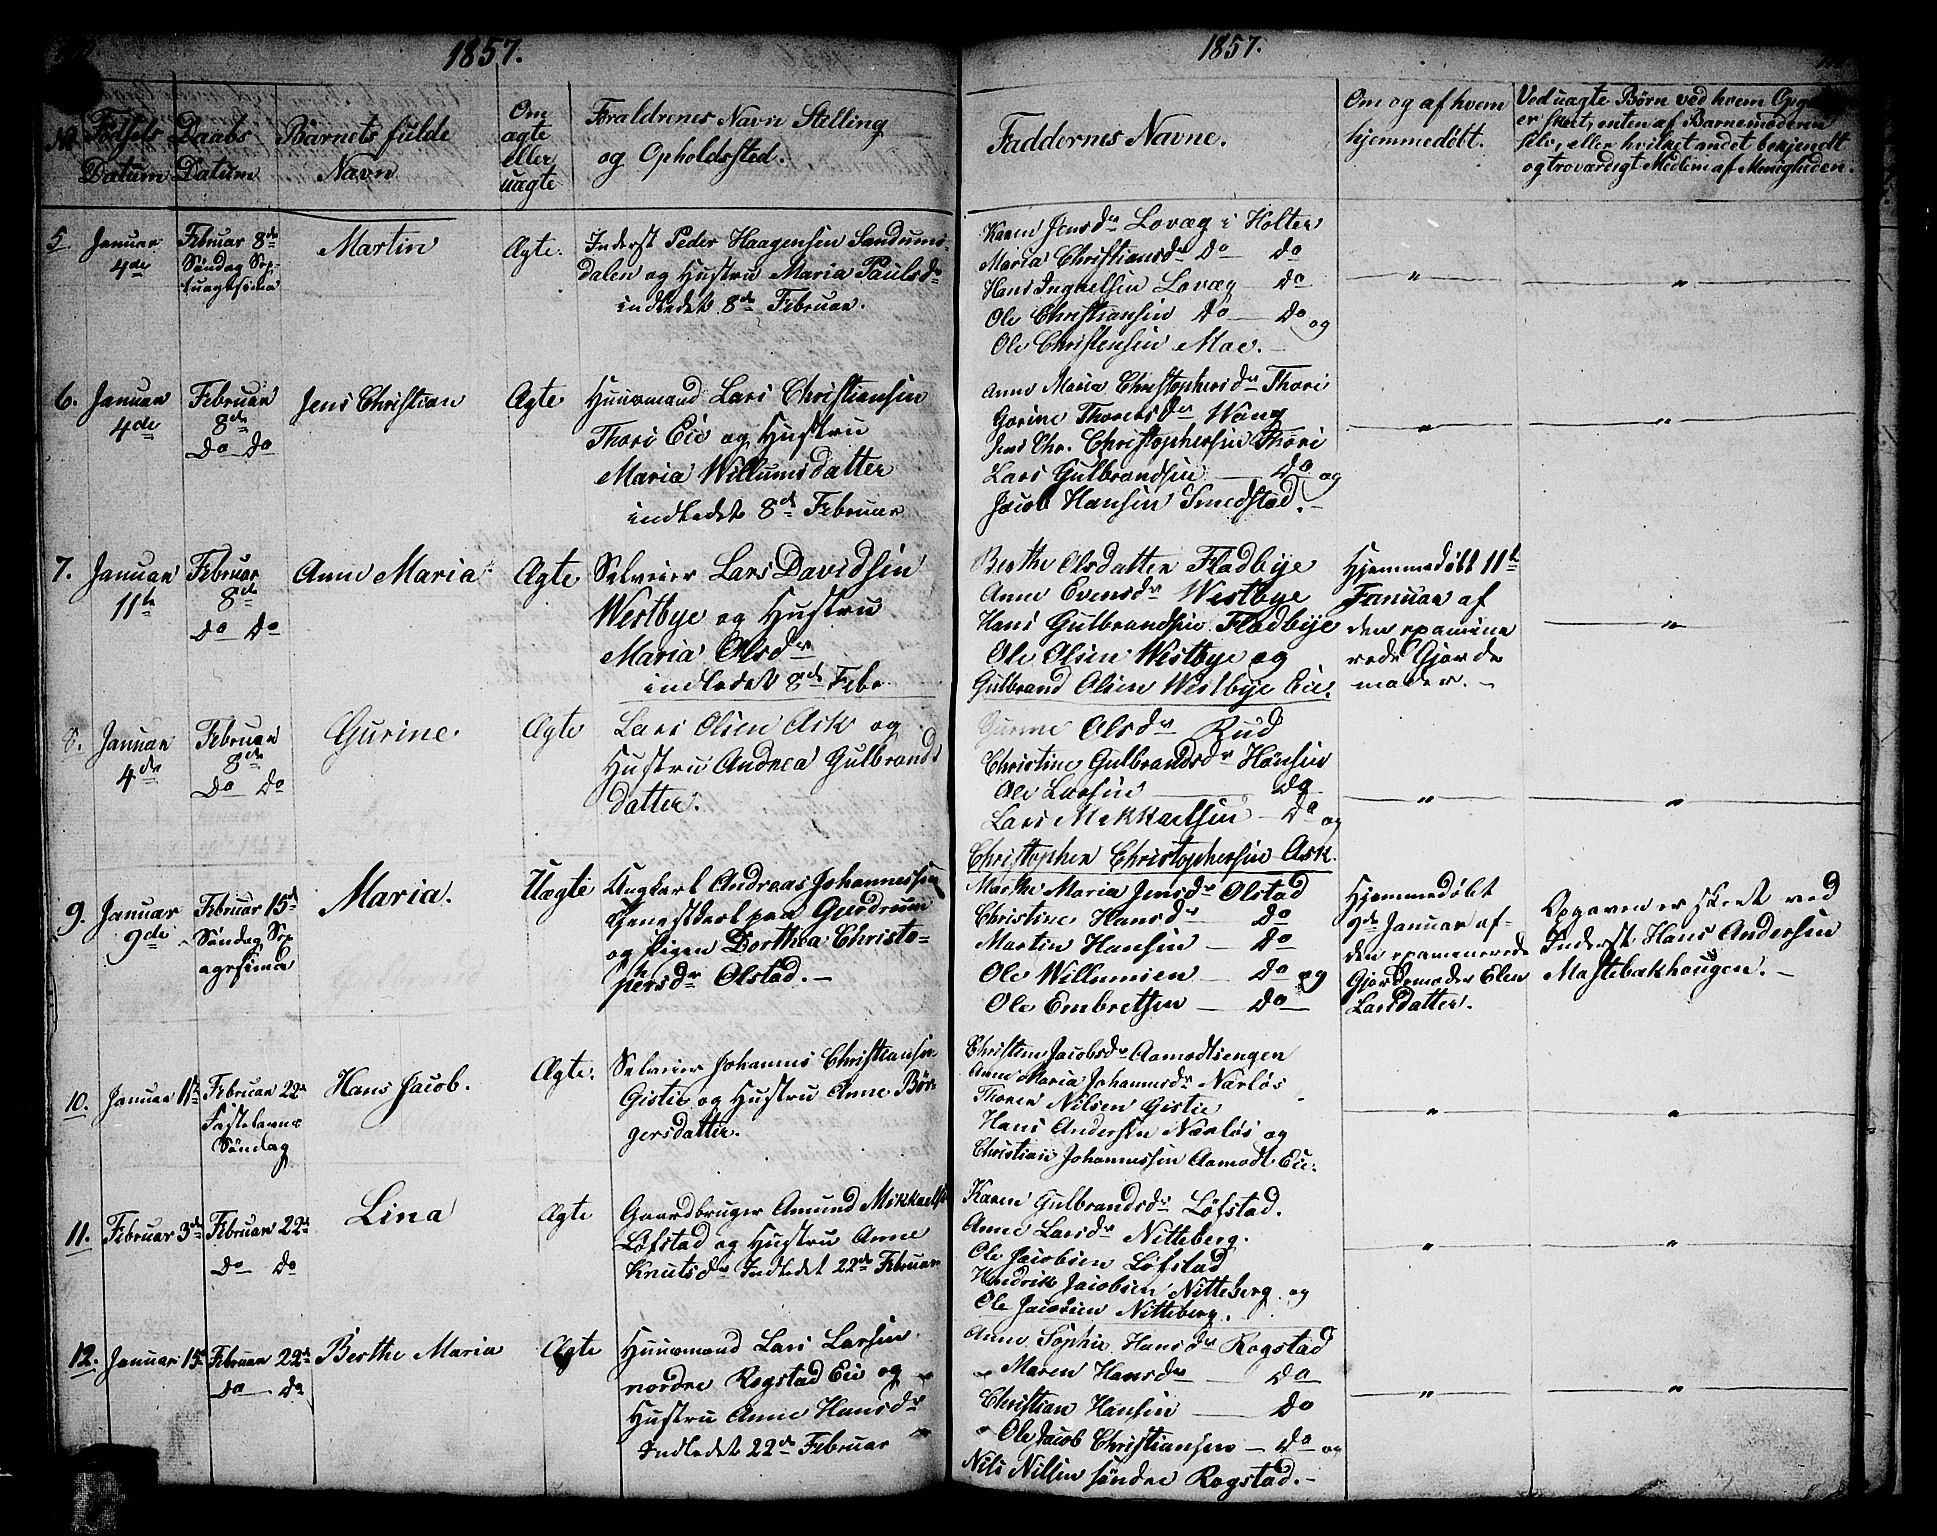 1857.
1857.
No Fødsels Datum
Daabs Datum
Barnets fulde Navn
Om ægte eller uægte
Forældrenes Navn Stelling og Opholdssted.
Faddernes Navne.
Om og af hvem hjemmedøbt.
Ved uægte Børn ved hvem
er skeet, enten af Barnemoderen
selv, eller hvilket andet bekjendt
og troværdigt Medlem af Menigheden.
5. Januar 4de
Februar 8de Søndag Septuagesima
Martin
Ægte.
Inderst Peder Haagensen Sandums-
dalen og Hustru Maria Paulsdr
indledet 8de Februar.
Karen Jensdr Lovæg i Holter
Maria Christiansdr Do Do
Hans Lovæg Do
Ole Christiansen Do Do og
Ole Christensen Moe.
" "
6. Januar 4de
Februar 8de Do Do
Jens Christian
Ægte
Huusmand Lars Christiansen
Thori Eie og Hustru
Maria Willumsdatter
indledet 8de Februar
Anne Maria Christophersdr Thori
Gorine Thoresdr Wang
Jens Chr. Christophersen Thori
Lars Gulbrandsen Do og
Jacob Hansen Smedstad.
" "
7. Januar 11te
Februar 8de Do Do
Anne Maria
Ægte
Selveier Lars Davidsen
Westbye og Hustru
Maria Olsdr
indledet 8de Febr.
Berthe Olsdatter Fladbye
Anne Evensdr Westbye
Hans Gulbrandsen Fladbye
Ole Olsen Westbye og
Gulbrand Olsen Westbye Eie.
Hjemmedøbt 11te
Januar af
den examine
rede Gjorde
moder.
"
8. Januar 4de
Februar 8de Do Do
Gurine.
Ægte
Lars Olsen Ask og
Hustru Andrea Gulbrands
datter.
Gurine Olsdr Rud
Christine Gulbrandsdr Hønsen
Ole Larsen Do
Lars Mikkaelsen Do og
Christopher Christophersen Ask.
" "
9. Januar 9de
Februar 15de Søndag Sexagesima
Maria.
Uægte
Ungkarl Andreas Johannessen
tjenestkarl paa Gjerdrum
og Pigen Dorthea Christo-
phersdr Olstad.
Marthe Maria Jensdr Olstad
Christine Hansdr Do
Martin Hansen Do
Ole Willumsen Do og
Ole Embretsen Do
Hjemmedøbt
9de Januar af
den examenerede
Gjordemoder Elen
Larsdatter.
Opgaven er skeet ved
Inderst Hans Andersen
Mastebakhougen.
10. Januar 11te
Februar 22de Fastelavns Søndag
Hans Jacob.
Ægte.
Selveier Johannes Christiansen
Gistie og Hustru Anne Bør-
gersdatter.
Christine Jacobsdr Aamodtsengen
Anne Maria Johannesdr Nærløs
Thorer Nilsen Gistie
Hans Andersen Nærløs og
Christian Johannessen Aamodt Eie.
" "
11. Februar 3de
Februar 22de Do Do
Lina
Ægte
Gaardbruger Amund Mikkaels
Løfstad og Hustru Anne
Knutsdr Indledet 22de Februar
Karen Gulbrandsdr Løfstad.
Anne Larsdr Nitteberg.
Ole Jacobsen Løfstad
Hendrik Jacobsen Nitteberg og
Ole Jacobsen Nitteberg.
" "
12. Januar 15de
Februar 22de Do Do
Berthe Maria
Ægte
Huusmand Lars Larsen
nordre Rogstad Eie og
Hustru Anne Hansdr
Indledet 22de Februar
Anne Sophie Hansdr Rogstad
Maren Hansdr Do
Christian Hansen Do
Ole Jacob Christiansen Do og
Nils Nilsen søndre Rogstad.
" "